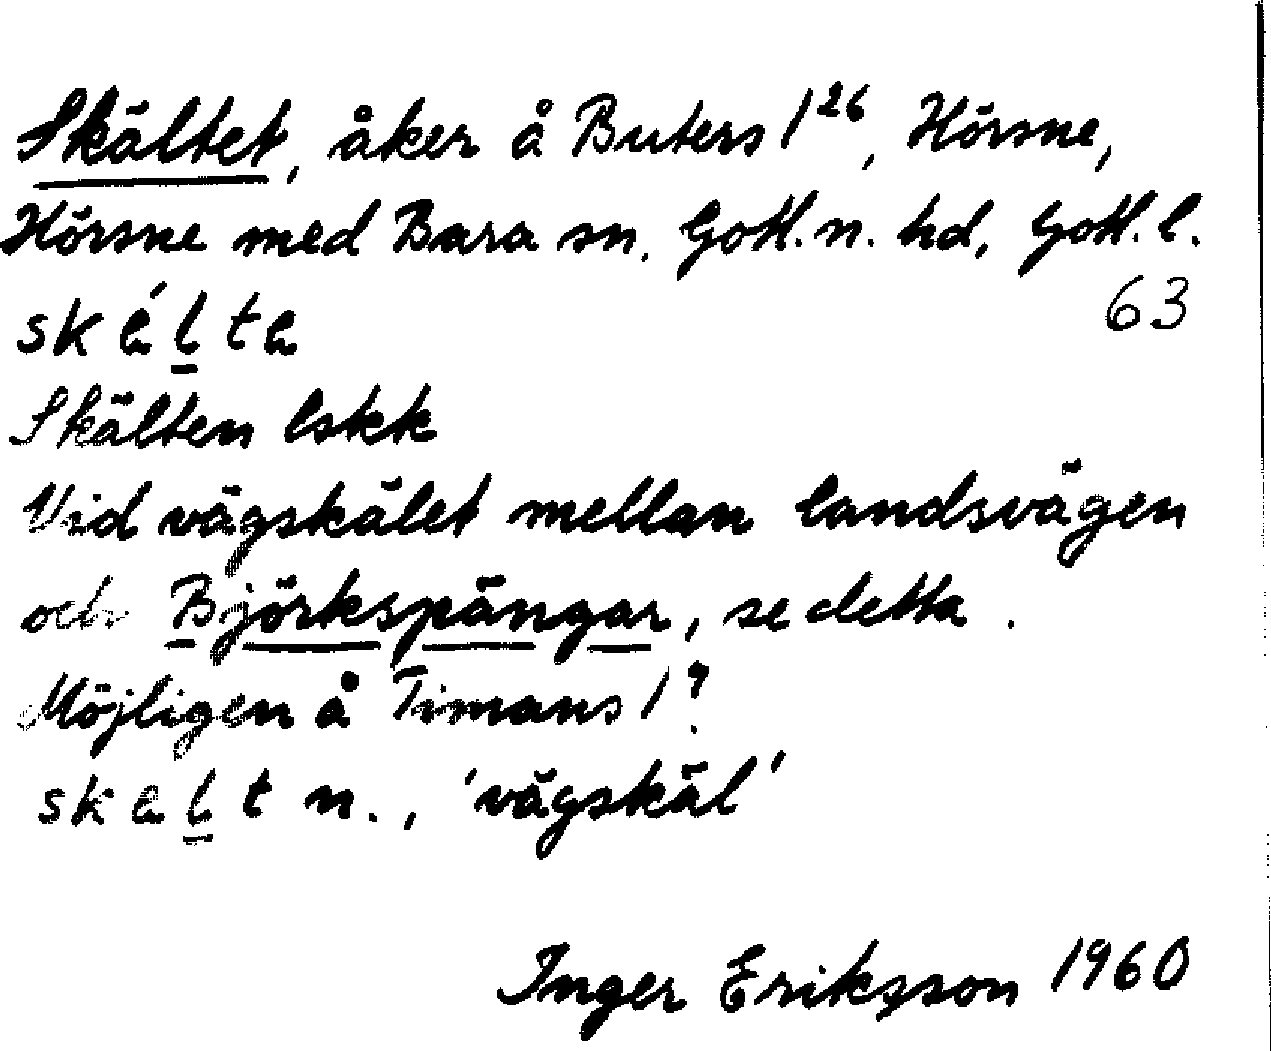 Skältet, åker å Buters 1²⁶, Hörsne,
Hörsne med Bara sn. Gotl. n. hd, Gotl. l.
skál̲ta 63
Skälten lskk
Vid vägskälet mellan landsvägen
och Björkspängar, se detta.
Möjligen å Timans 1?
skal̲t n., 'vägskäl'
Inger Eriksson 1960